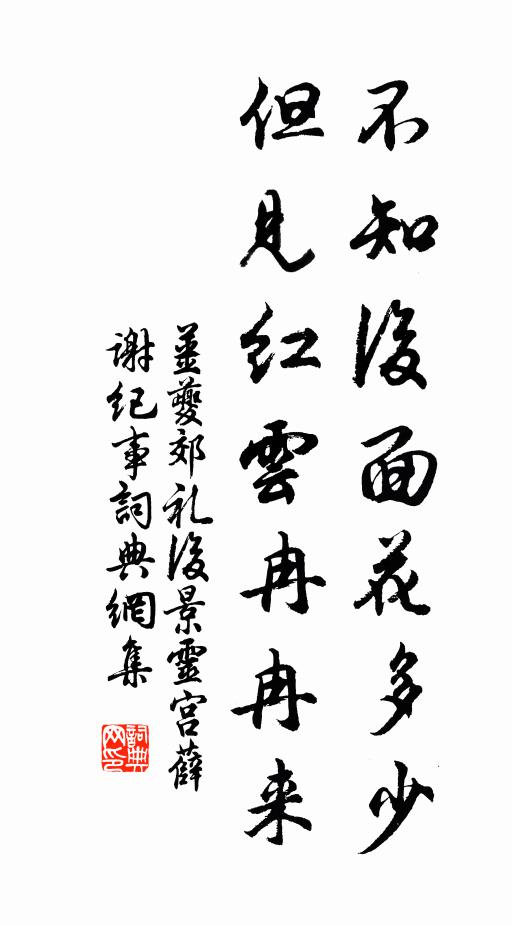 不知後面花多少
但見红雲冉冉来
姜夔郊礼後景靈宫薛
謝纪事詞典網集
詞典網印